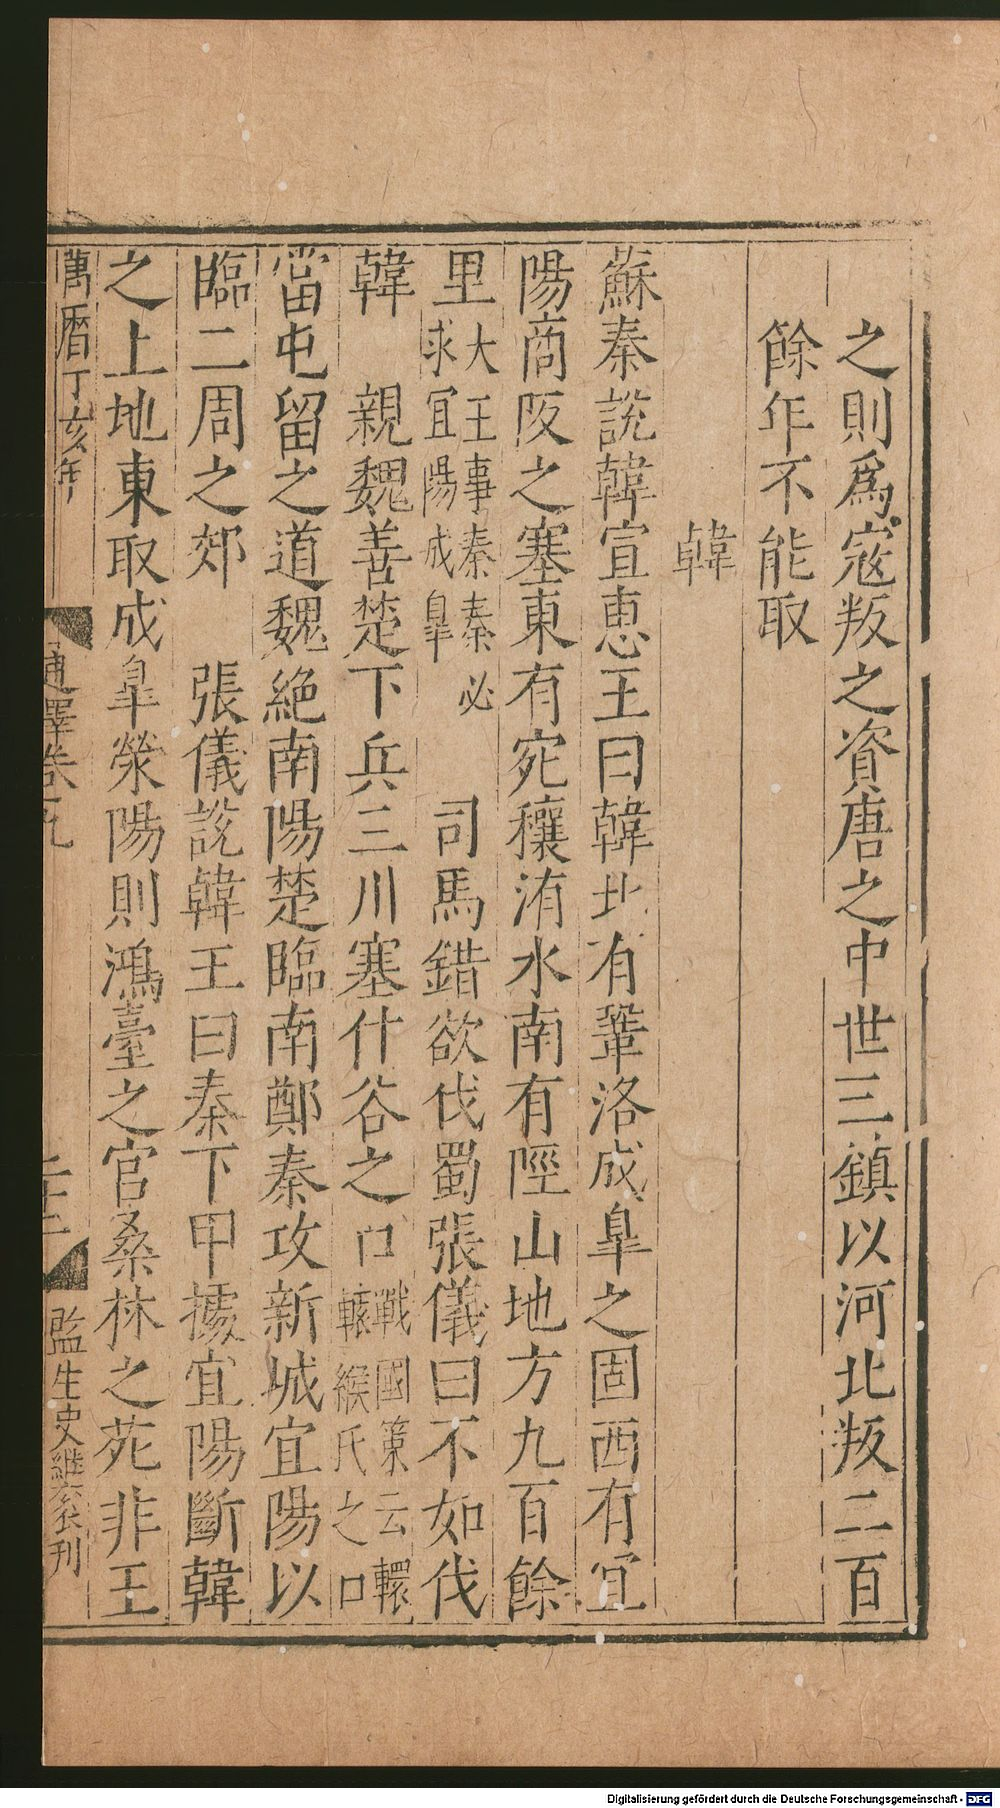 之則爲寇叛之資唐之中世三鎮以河北叛二百
餘年不能取
韓
蘇秦說韓宣惠王曰韓北有鞏洛成臯之固西有宜
陽商阪之塞東有宛穰洧水南有陘山地方九百餘
里大王事秦秦必求宜陽成臯 司馬錯欲伐蜀張儀曰不如伐
韓 親魏善楚下兵三川塞什谷之口戰國策云轘轅緱氏之口
當屯留之道魏絕南陽楚臨南鄭秦攻新城宜陽以
臨二周之郊 張儀說韓王曰秦下甲據宜陽斷韓
之上地東取成臯滎陽則鴻臺之宮桑林之苑非王
萬曆丁亥年
通釋卷九
二十二
監生史繼衮刊
Digitalisierung gefördert durch die Deutsche Forschungsgemeinschaft - DFG